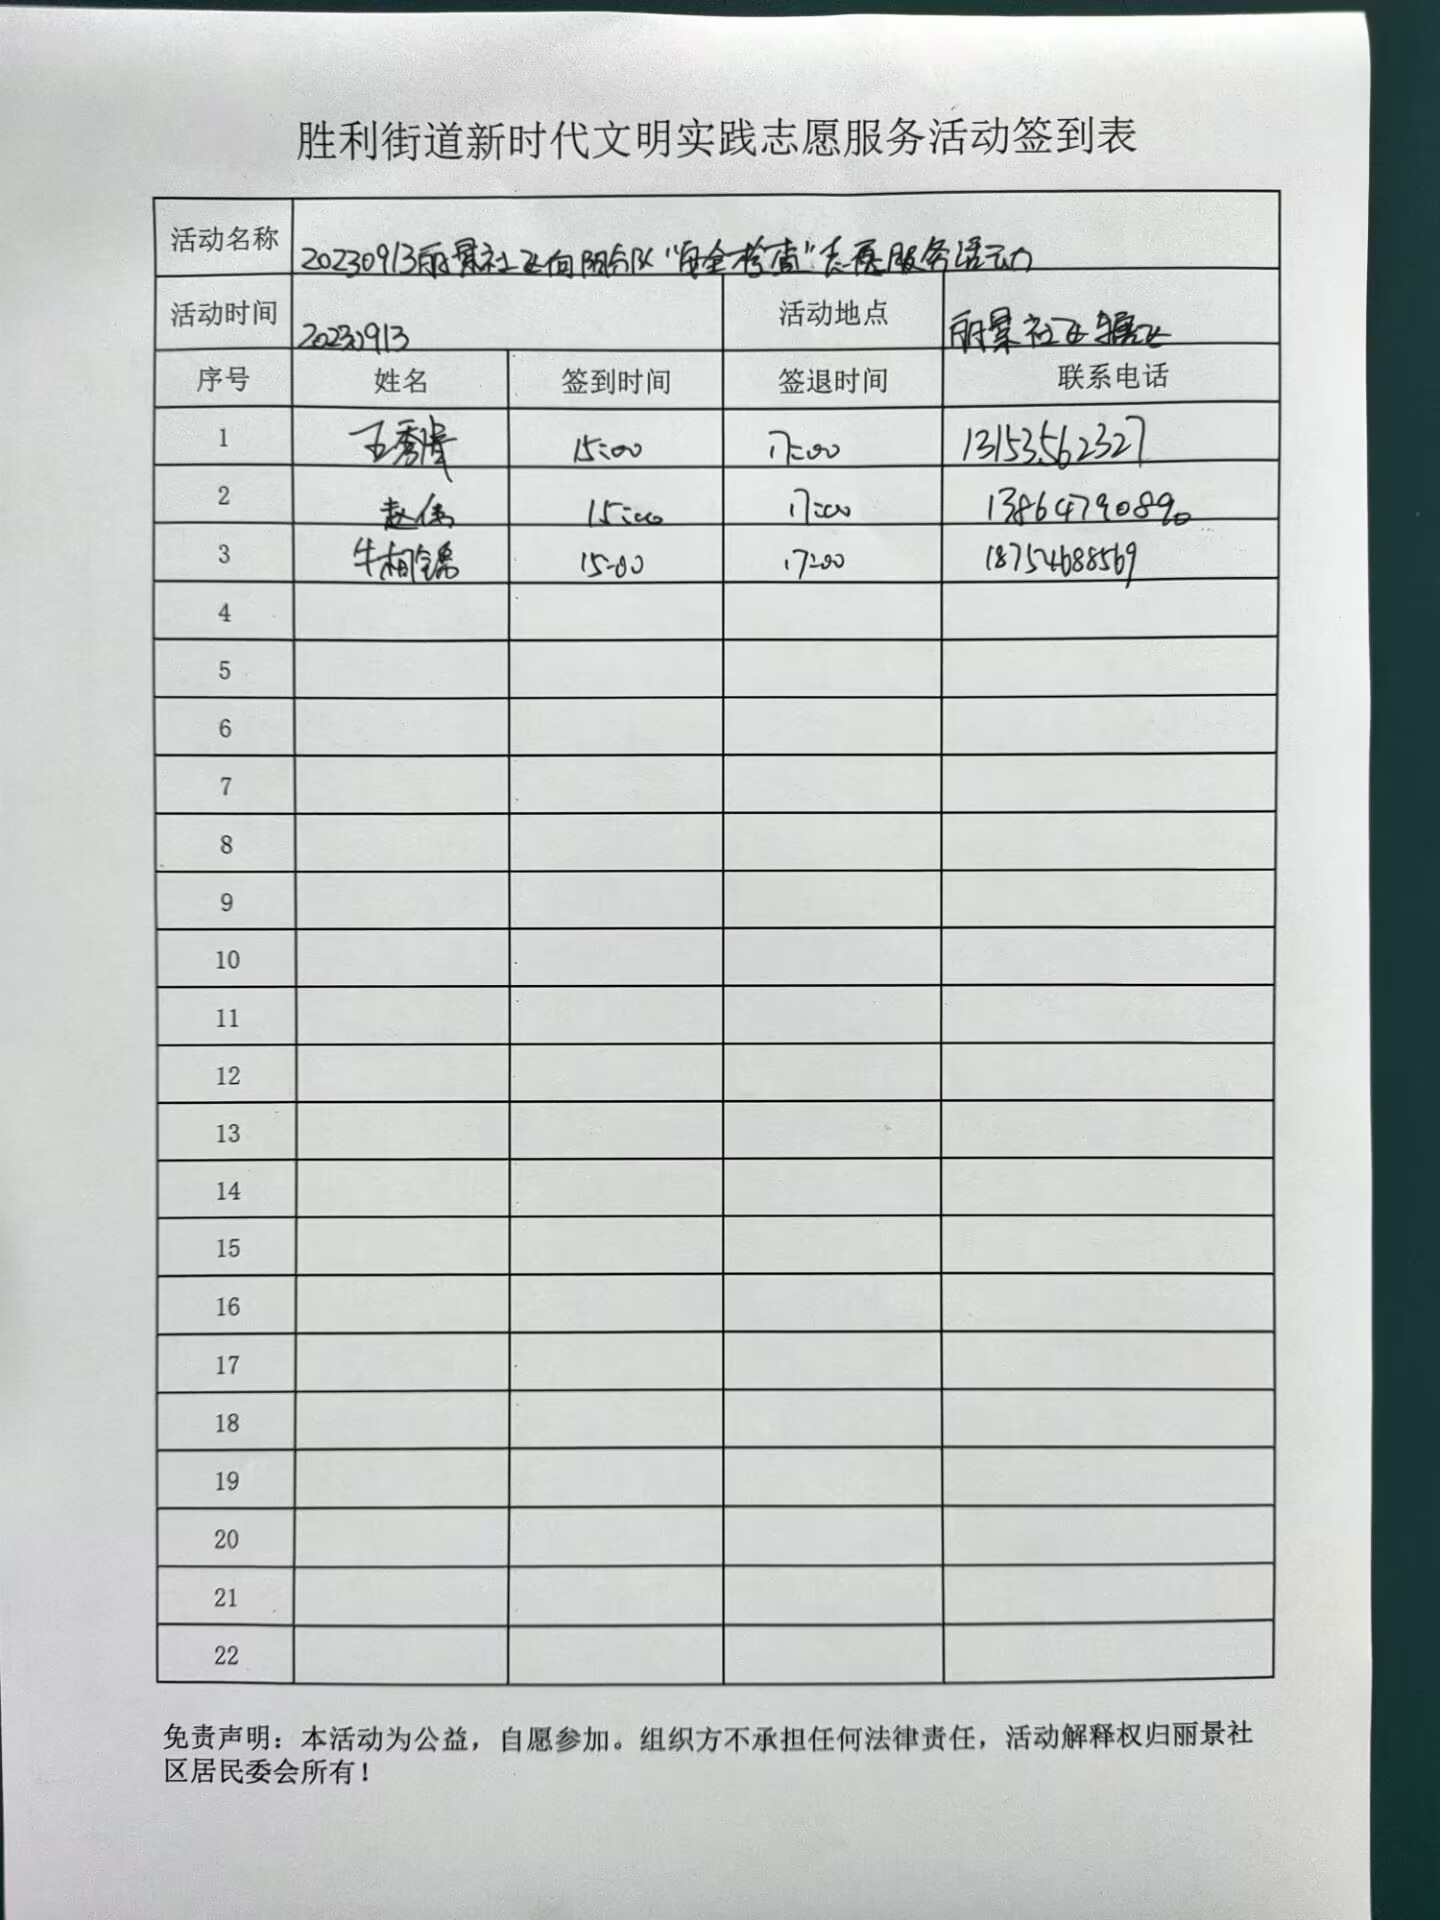 胜利街道新时代文明实践志愿服务活动签到表
活动名称 20230913丽景社区向阳台队“安全检查”志愿服务活动
活动时间 20230913 活动地点 丽景社区辖区
序号 姓名 签到时间 签退时间 联系电话
1 王秀 15:00 17:00 13153562327
2 赵伟 15:00 17:00 13864790890
3 牛相 15:00 17:00 18754688569
4
5
6
7
8
9
10
11
12
13
14
15
16
17
18
19
20
21
22
免责声明：本活动为公益，自愿参加。组织方不承担任何法律责任，活动解释权归丽景社
区居民委会所有！